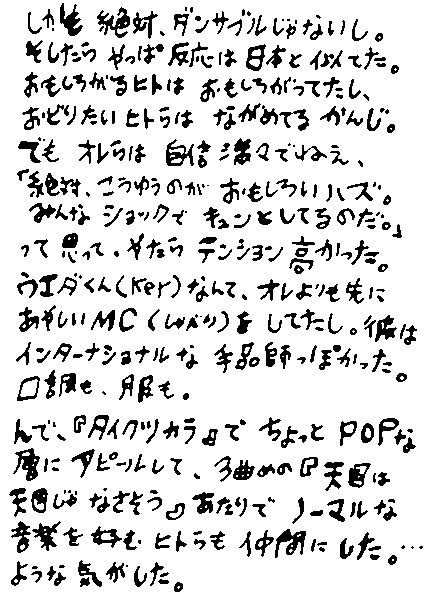 しかも 絶対、ダンサブルじゃないし。
そしたら やっぱ 反応は 日本と似てた。
おもしろがるヒトは おもしろがってたし、
おどりたいヒトらは ながめてる かんじ。
でも オレらは 自信満々でねえ、
「絶対、こうゆうのが おもしろいハズ。
みんな ショックで キュンとしてるのだ。」
って 思って、やたら テンション 高かった。
ウエダくん(Ker)なんて、オレよりも先に
あやしいMC(しゃべり)を してたし。彼は
インターナショナルな 手品師っぽかった。
口調も、服も。
んで、『タイクツカラ』で ちょっと POPな
層に アピールして、3曲めの『天国は
天国じゃ なさそう』あたりで ノーマルな
音楽を好む ヒトらも 仲間に した。…
ような 気がした。